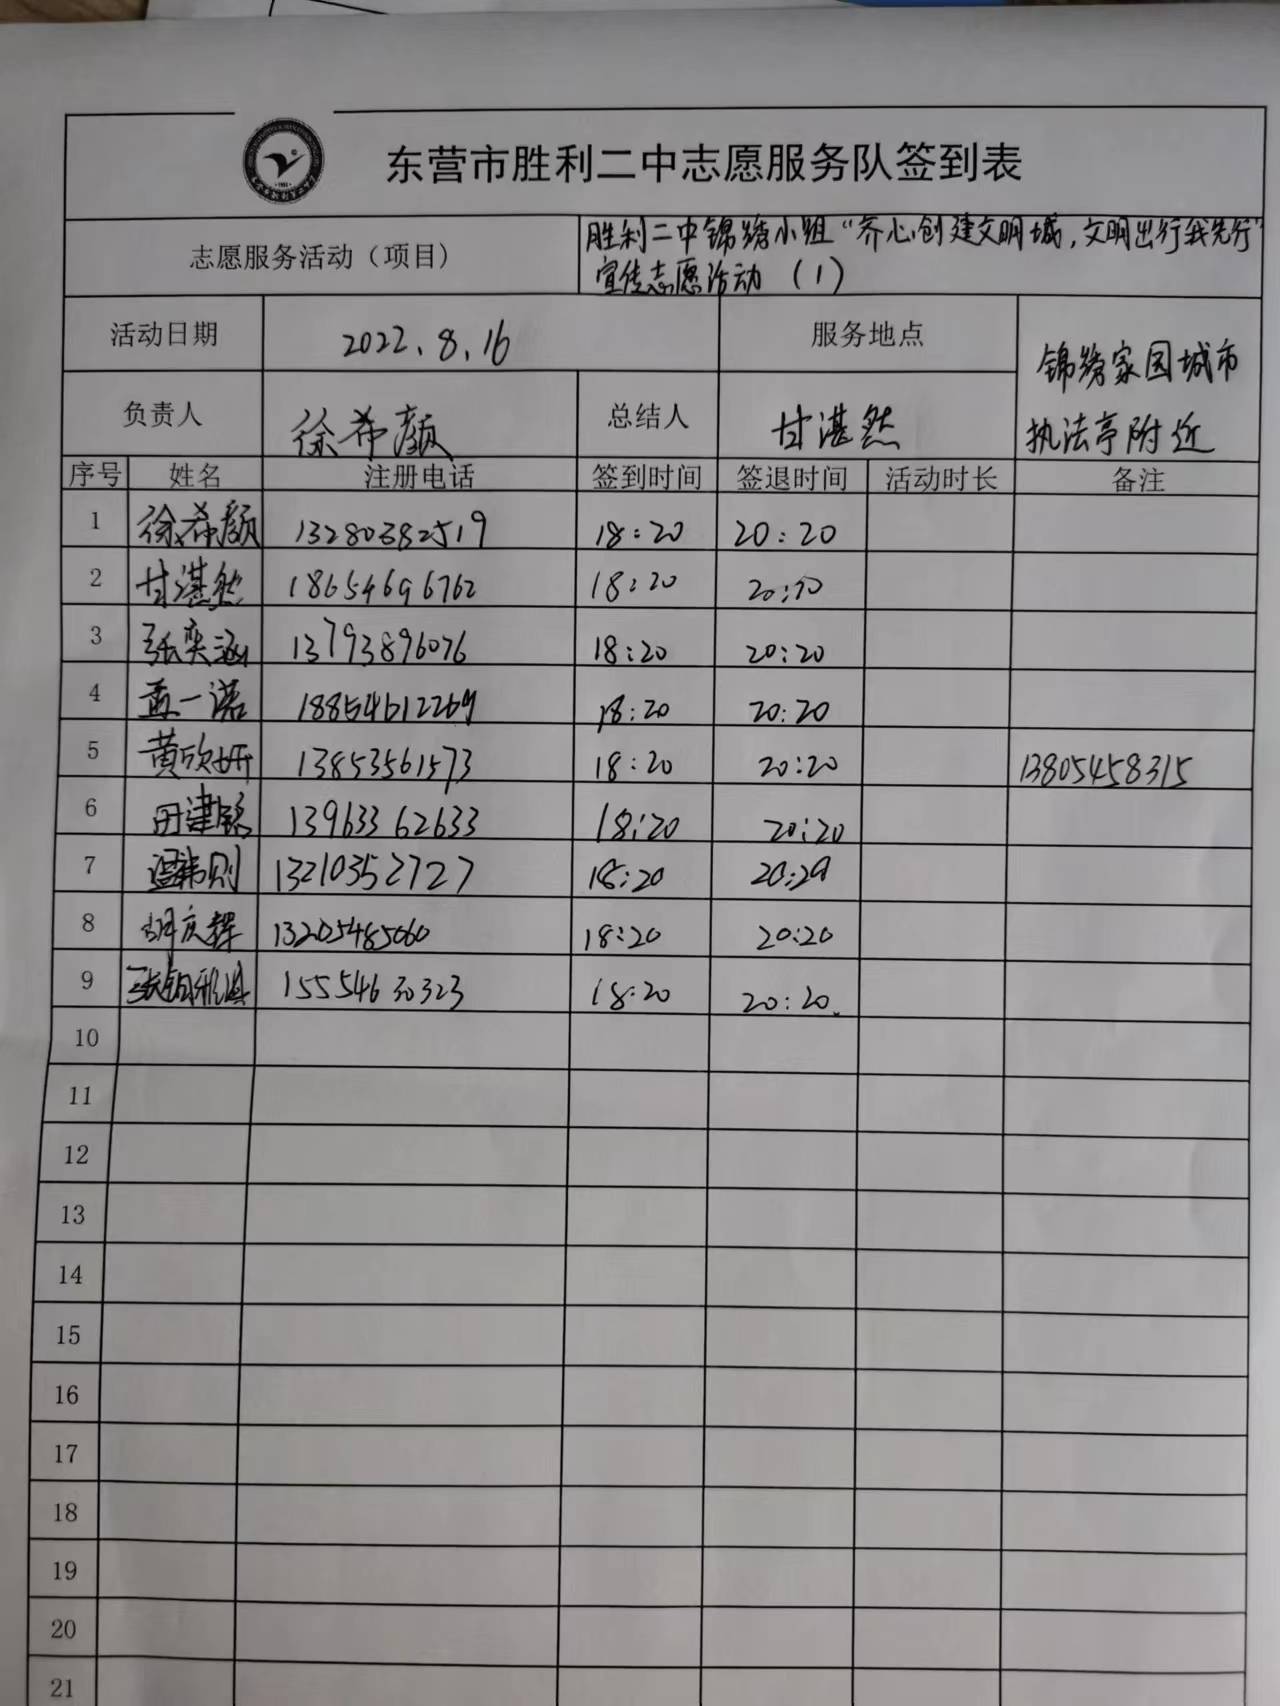 东营市胜利二中志愿服务队签到表
志愿服务活动（项目） 胜利二中锦绣小组“齐心创建文明城，文明出行我先行”
宣传志愿活动（1）
活动日期 2022.8.16 服务地点 锦绣家园城市
执法亭附近
负责人 徐希颜 总结人 甘湛然
序号 姓名 注册电话 签到时间 签退时间 活动时长 备注
1 徐希颜 13280382519 18:20 20:20
2 甘湛然 18654696762 18:20 20:20
3 张奕涵 13793896076 18:20 20:20
4 孟一诺 18854612269 18:20 20:20
5 黄欣妍 13853561573 18:20 20:20 13805458315
6 田建铭 13963362633 18:20 20:20
7 温韩则 13210352727 18:20 20:20
8 胡庆辉 13205485060 18:20 20:20
9 15554630323 18:20 20:20.
10
11
12
13
14
15
16
17
18
19
20
21